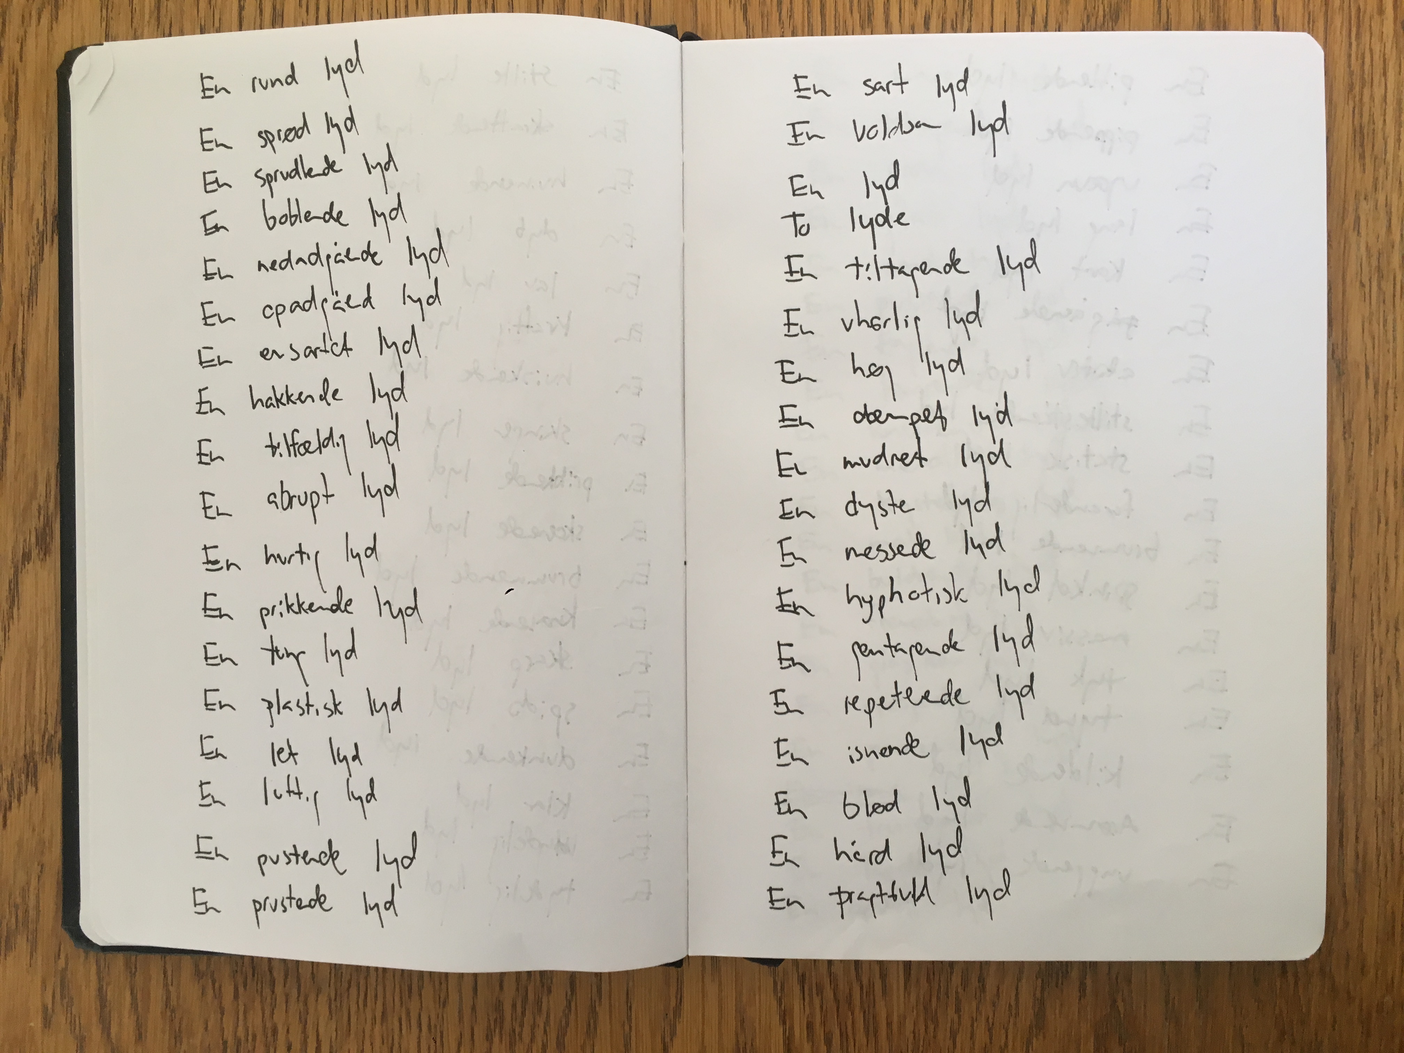 En rund lyd
En sprød lyd
En sprudlende lyd
En boblende lyd
En nedadgående lyd
En opadgåend lyd
En ensartet lyd
En hakkende lyd
En tilfældig lyd
En abrupt lyd
En hurtig lyd
En prikkende lyd
En tung lyd
En plastisk lyd
En let lyd
En luftig lyd
En pustende lyd
En prustede lyd
En sart lyd
En voldsom lyd
En lyd
To lyde
En tiltagende lyd
En uhørlig lyd
En høj lyd
En dæmpet lyd
En mudret lyd
En dyster lyd
En messede lyd
En hyphotisk lyd
En gentagende lyd
En repeterede lyd
En isnende lyd
En blød lyd
En hård lyd
En pragtfuld lyd